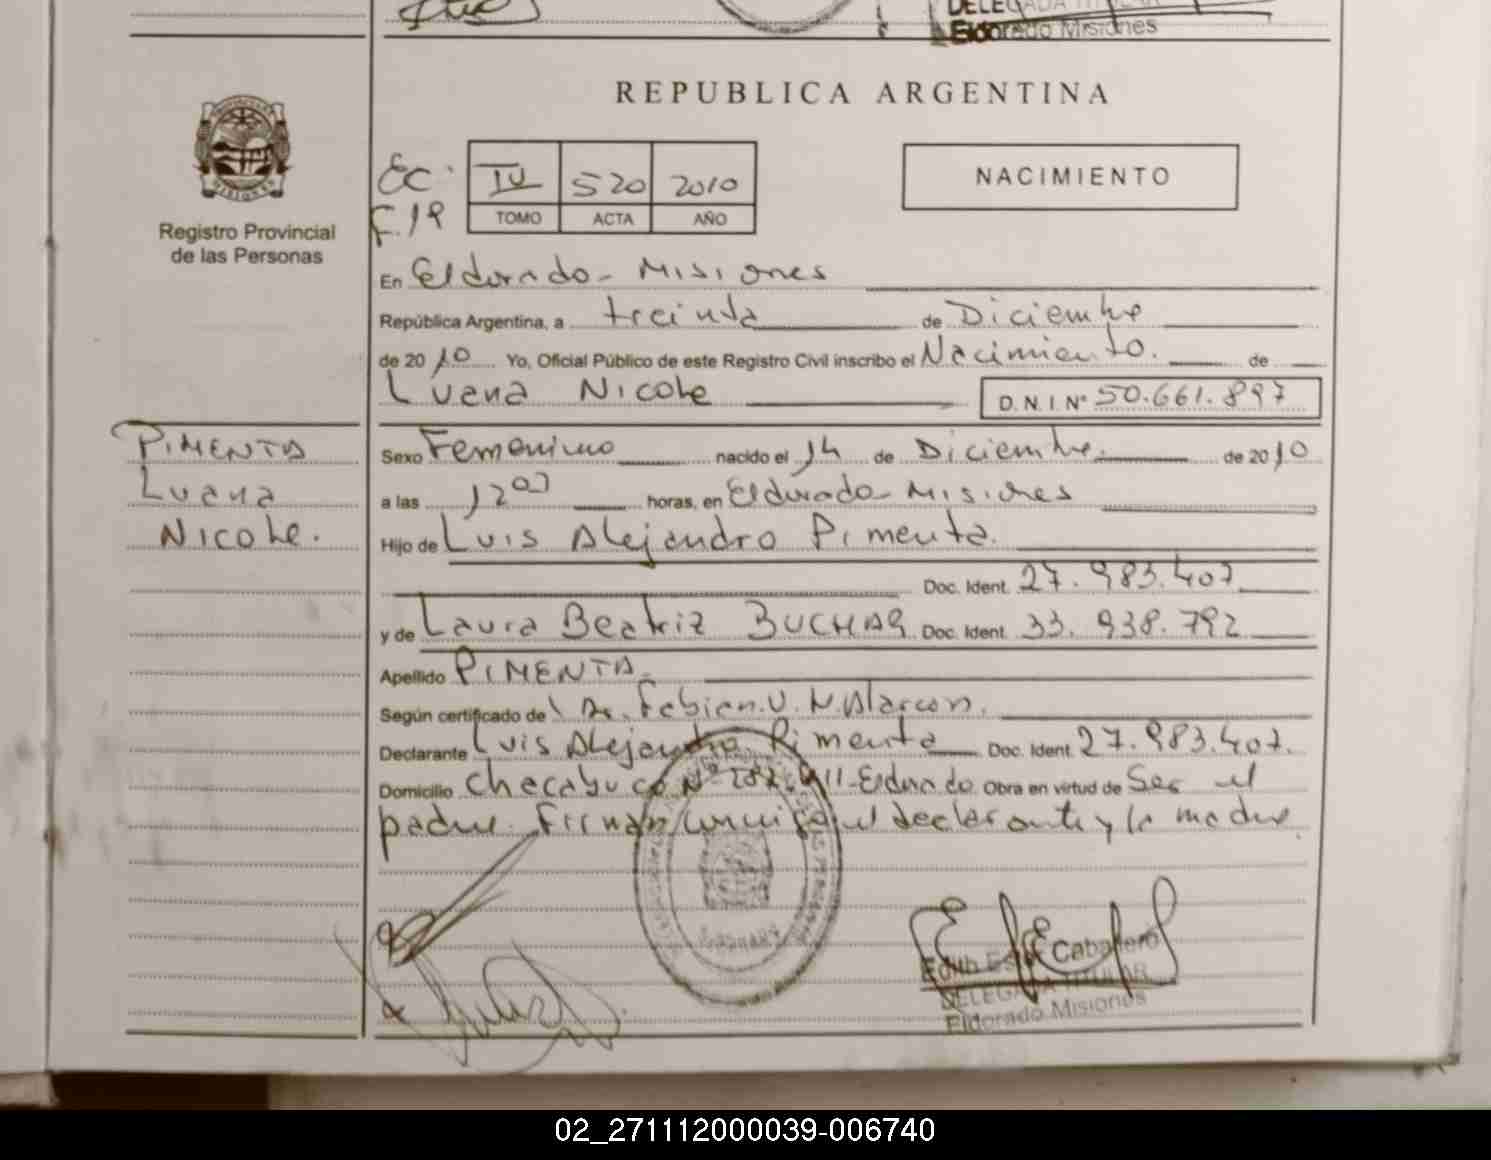 DELEGADA TITULAR
Eldorado Misiones
REPUBLICA ARGENTINA
Registro Provincial
de las Personas
EC.
F. 19
IV 520 2010
TOMO ACTA AÑO
NACIMIENTO
En Eldorado - Misiones
República Argentina, a treinta de Diciembre
de 2010 Yo, Oficial Público de este Registro Civil inscribo el Nacimiento. de
Luana Nicole D.N.I. N° 50.661.897
PIMENTA
Luana
Nicole.
Sexo Femenino nacido el 14 de Diciembre. de 2010
a las 12 00 horas, en Eldorado - Misiones
Hijo de Luis Alejandro Pimenta.
Doc. Ident. 27.983.407
y de Laura Beatriz Doc. Ident. 33.938.792
Apellido PIMENTA.
Según certificado de Dr. Fabian. V. N. Alarcon.
Declarante Luis Alejandro Pimenta Doc. Ident. 27.983.407.
Domicilio Chacabuco N° Eldorado Obra en virtud de Ser el
padre. Firman conmigo el declarante y la madre.
Edith Caballero
DELEGADA TITULAR
Eldorado Misiones
02_271112000039-006740